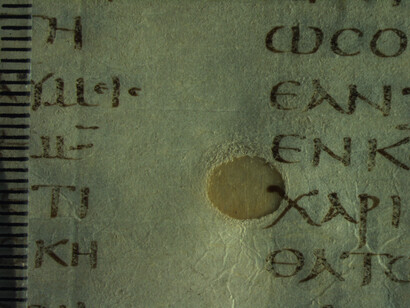 Η
ΤΙ
ΚΗ
ωϹΟ
ΕΑΝ
ΕΝΚ
ΧΑΡΙ
ΘΑΤΟ